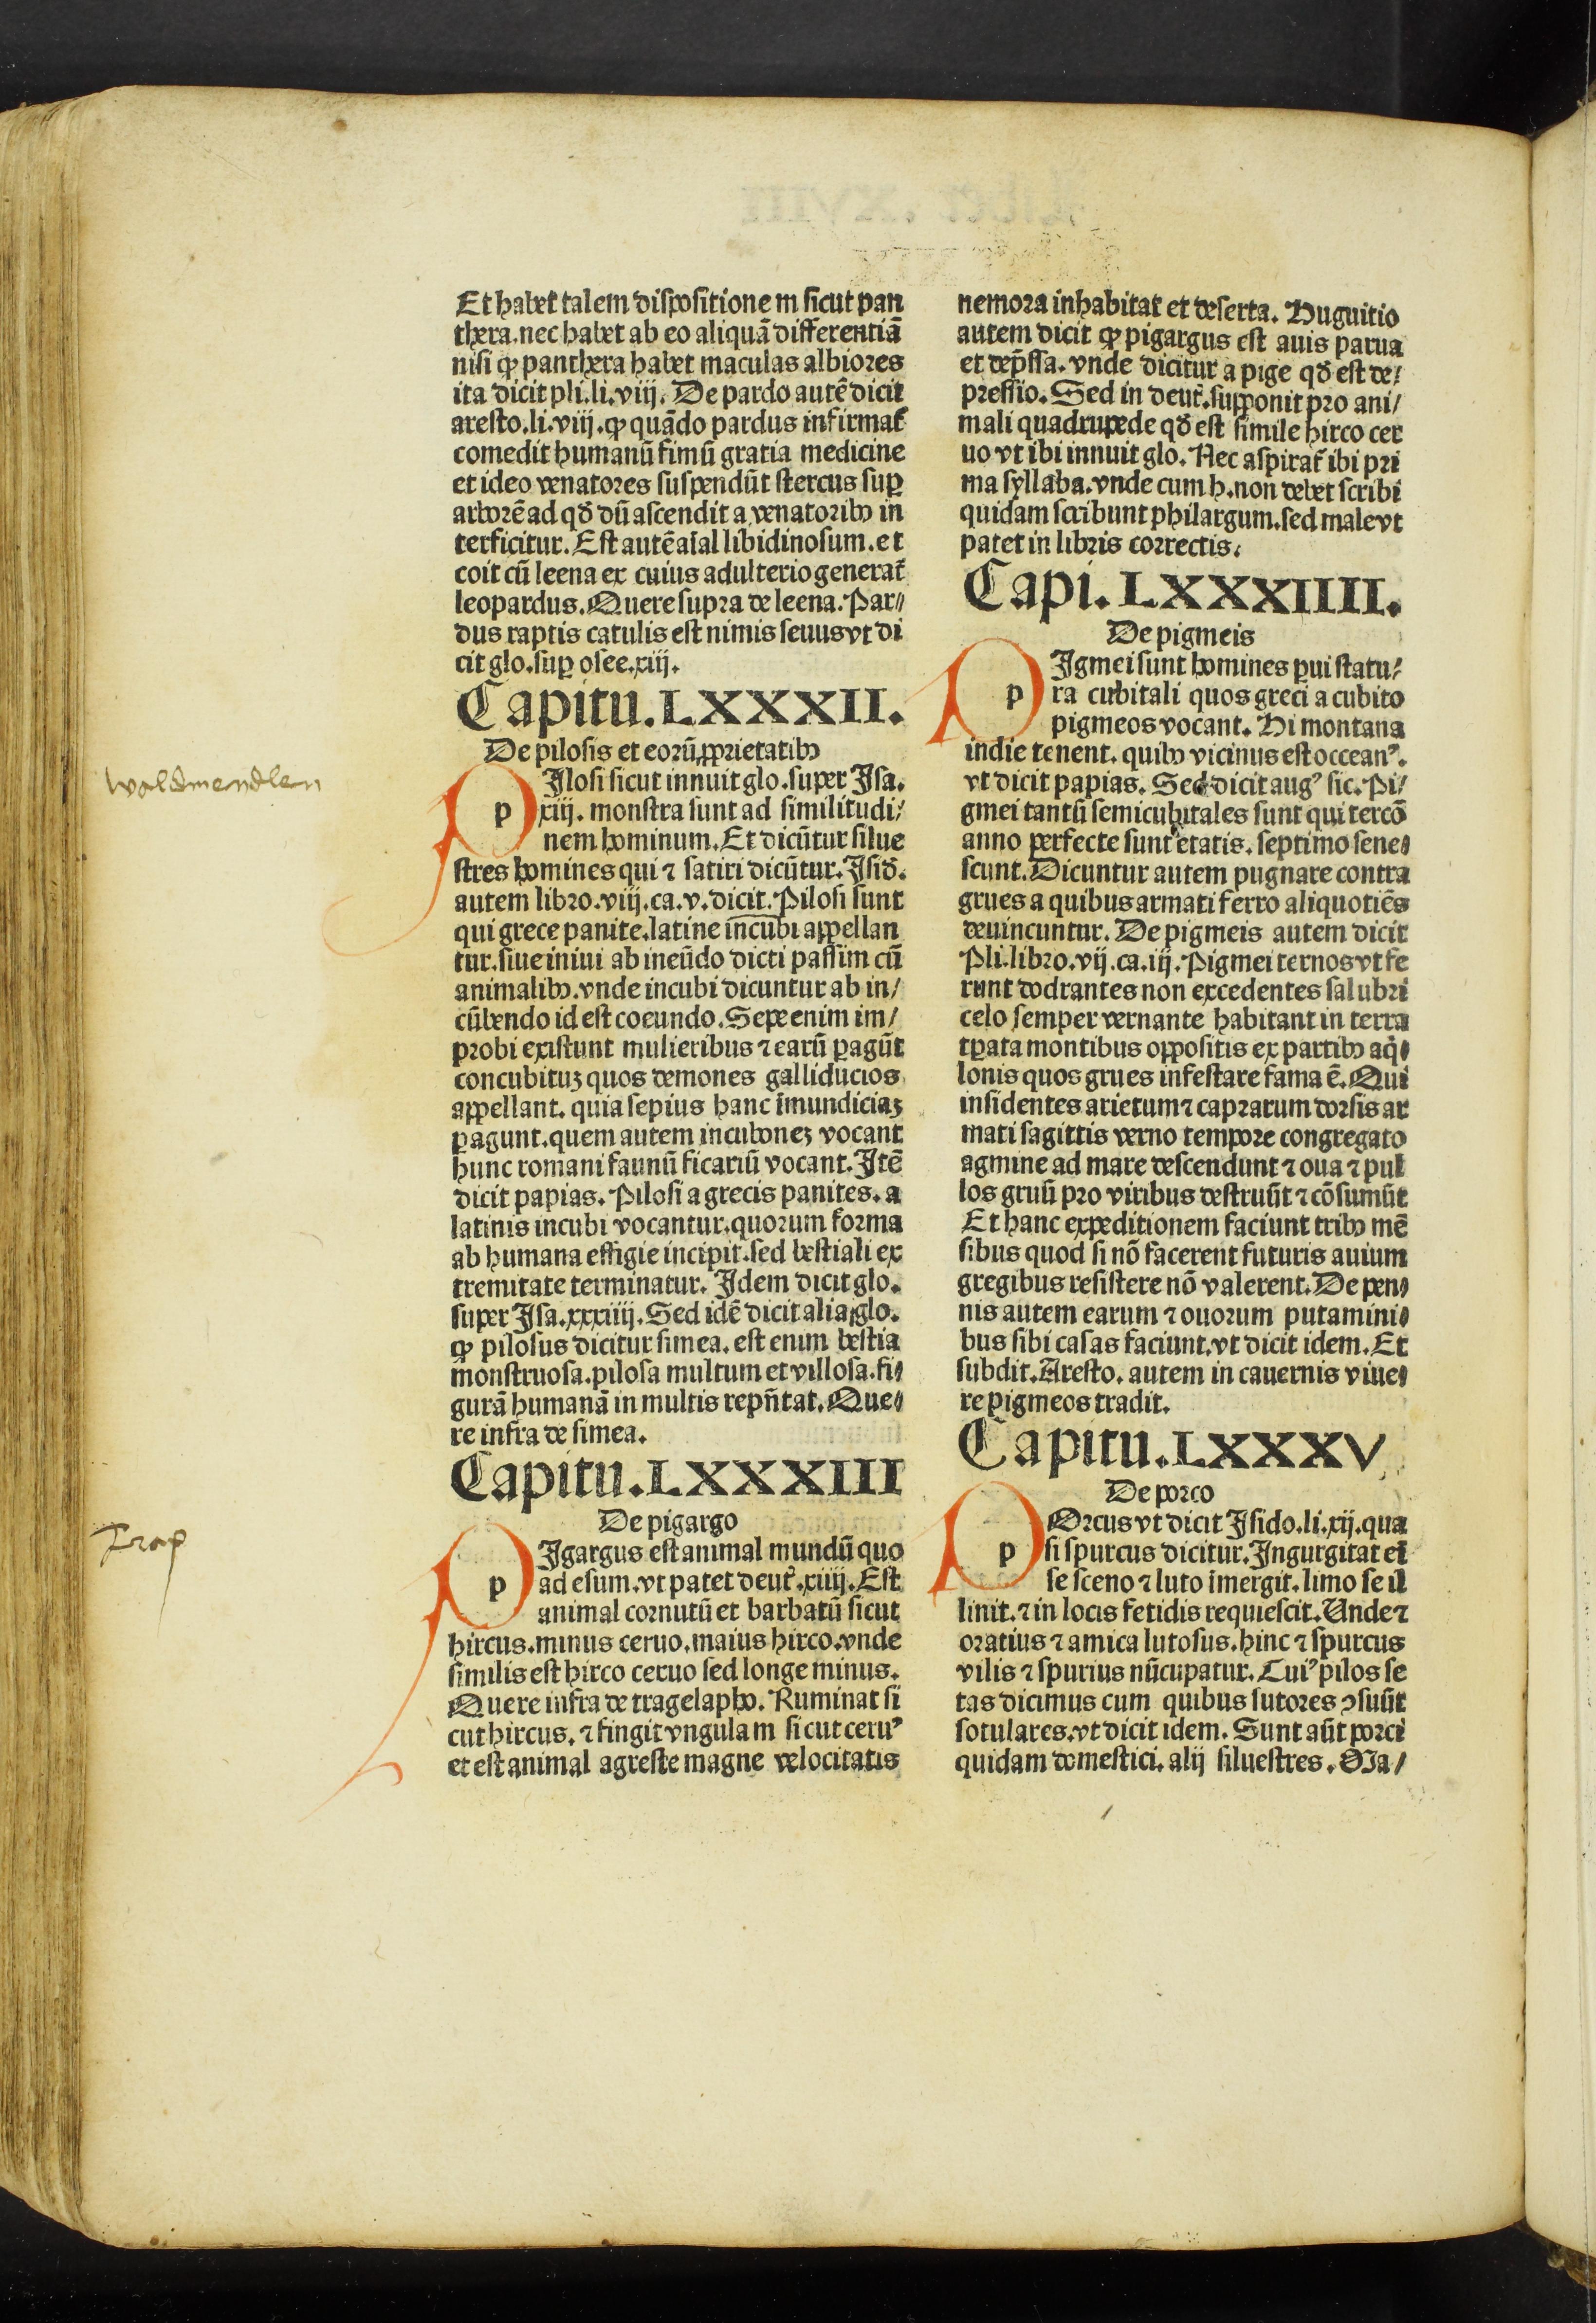 Et habet talem dispositionem sicut pan
thera. nec habet ab eo aliquā differentiā
nisi ꝙ panthera habet maculas albiores
ita dicit pli. li. viij. De pardo autē dicit
aresto. li. viij. ꝙ quādo pardus infirmat᷑
comedit humanū fimū gratia medicine
et ideo venatores suspendūt stercus sup̱
arborē ad qď dū ascendit a venatoribꝰ in
terficitur. Est autē aīal libidinosum. et
coit cū leena ex cuius adulterio generat᷑
leopardus. Quere supra de leena. Par⸗
dus raptis catulis est nimis seuus vt di
cit glo. sup̱ osee. xiij.
Capitu. LXXXII.
De pilosis et eorū ꝓprietatibꝰ
waldmendlen
pIlosi sicut innuit glo. super Isa.
xiij. monstra sunt ad similitudi/
nem hominum. Et dicūtur silue
stres homines qui ⁊ satiri dicūtur. Isiď.
autem libro. viij. ca. v. dicit. Pilosi sunt
qui grece panite. latine incubi appellan
tur. siue iniui ab ineūdo dicti passim cū
animalibꝰ. vnde incubi dicuntur ab in/
cūbendo id est coeundo. Sepe enim im/
probi existunt mulieribus ⁊ earū ꝑagūt
concubituꝫ quos demones galliducios
appellant. quia sepius hanc īmundiciaꝫ
ꝑagunt. quem autem inciboneꝫ vocant
hunc romani faunū ficariū vocant. Itē
dicit papias. Pilosi a grecis panites. a
latinis incubi vocantur. quorum forma
ab humana effigie incipit. sed bestiali ex
tremitate terminatur. Idem dicit glo.
super Isa. xxxiiij. Sed idē dicit alia glo.
ꝙ pilosus dicitur simea. est enim bestia
monstruosa. pilosa multum et villosa. fi⸗
gurā humanā in multis repn̄tat. Que⸗
re infra de simea.
Capitu. LXXXIII
De pigargo
Trap
pIgargus est animal mundū quo
ad esum. vt patet deut᷑. xiiij. Est
animal cornutū et barbatū sicut
hircus. minus ceruo. maius hirco. vnde
similis est hirco ceruo sed longe minus.
Quere infra de tragelapho. Ruminat si
cut hircus. ⁊ fingit vngulam sicut ceruꝰ
et est animal agreste magne velocitatis
nemora inhabitat et deserta. Huguitio
autem dicit ꝙ pigargus est auis parua
et dep̄ssa. vnde dicitur a pige qď est de/
pressio. Sed in deut᷑. supponit pro ani/
mali quadrupede qď est simile hirco cer
uo vt ibi innuit glo. Nec aspirat᷑ ibi pri
ma syllaba. vnde cum h. non debet scribi
quidam scribunt philargum. sed male vt
patet in libris correctis.
Capi. LXXXIIII.
De pigmeis
pIgmei sunt homines ꝑui statu/
ra cubitali quos greci a cubito
pigmeos vocant. Hi montana
indie tenent. quibꝰ vicinus est occeanꝰ.
vt dicit papias. Sed dicit augꝰ sic. Pi/
gmei tantū semicubitales sunt qui tercō
anno perfecte sunt etatis. septimo sene⸗
scunt. Dicuntur autem pugnare contra
grues a quibus armati ferro aliquotiēs
deuincuntur. De pigmeis autem dicit
Pli. libro. vij. ca. iij. Pigmei ternos vt fe
runt dodrantes non excedentes salubri
celo semper vernante habitant in terra
tꝑata montibus oppositis ex partibꝰ aq̇⸗
lonis quos grues infestare fama ē. Qui
insidentes arietum ⁊ caprarum dorsis ar
mati sagittis verno tempore congregato
agmine ad mare descendunt ⁊ oua ⁊ pul
los gruū pro viribus destruūt ⁊ cōsumūt
Et hanc expeditionem faciunt tribꝰ mē
sibus quod si nō facerent futuris auium
gregibus resistere nō valerent. De pen⸗
nis autem earum ⁊ ouorum putamini⸗
bus sibi casas faciunt. vt dicit idem. Et
subdit. Aresto. autem in cauernis viue⸗
re pigmeos tradit.
Capitu. LXXXV
De porco
pOrcus vt dicit Isido. li. xij. qua
si spurcus dicitur. Ingurgitat eī
se sceno ⁊ luto īmergit. limo se il
linit. ⁊ in locis fetidis requiescit. Unde ⁊
oratius ⁊ amica lutosus. hinc ⁊ spurcus
vilis ⁊ spurius nūcupatur. Cuiꝰ pilos se
tas dicimus cum quibus sutores ꝯsuūt
sotulares. vt dicit idem. Sunt aūt porci
quidam domestici. alij siluestres. Ma/